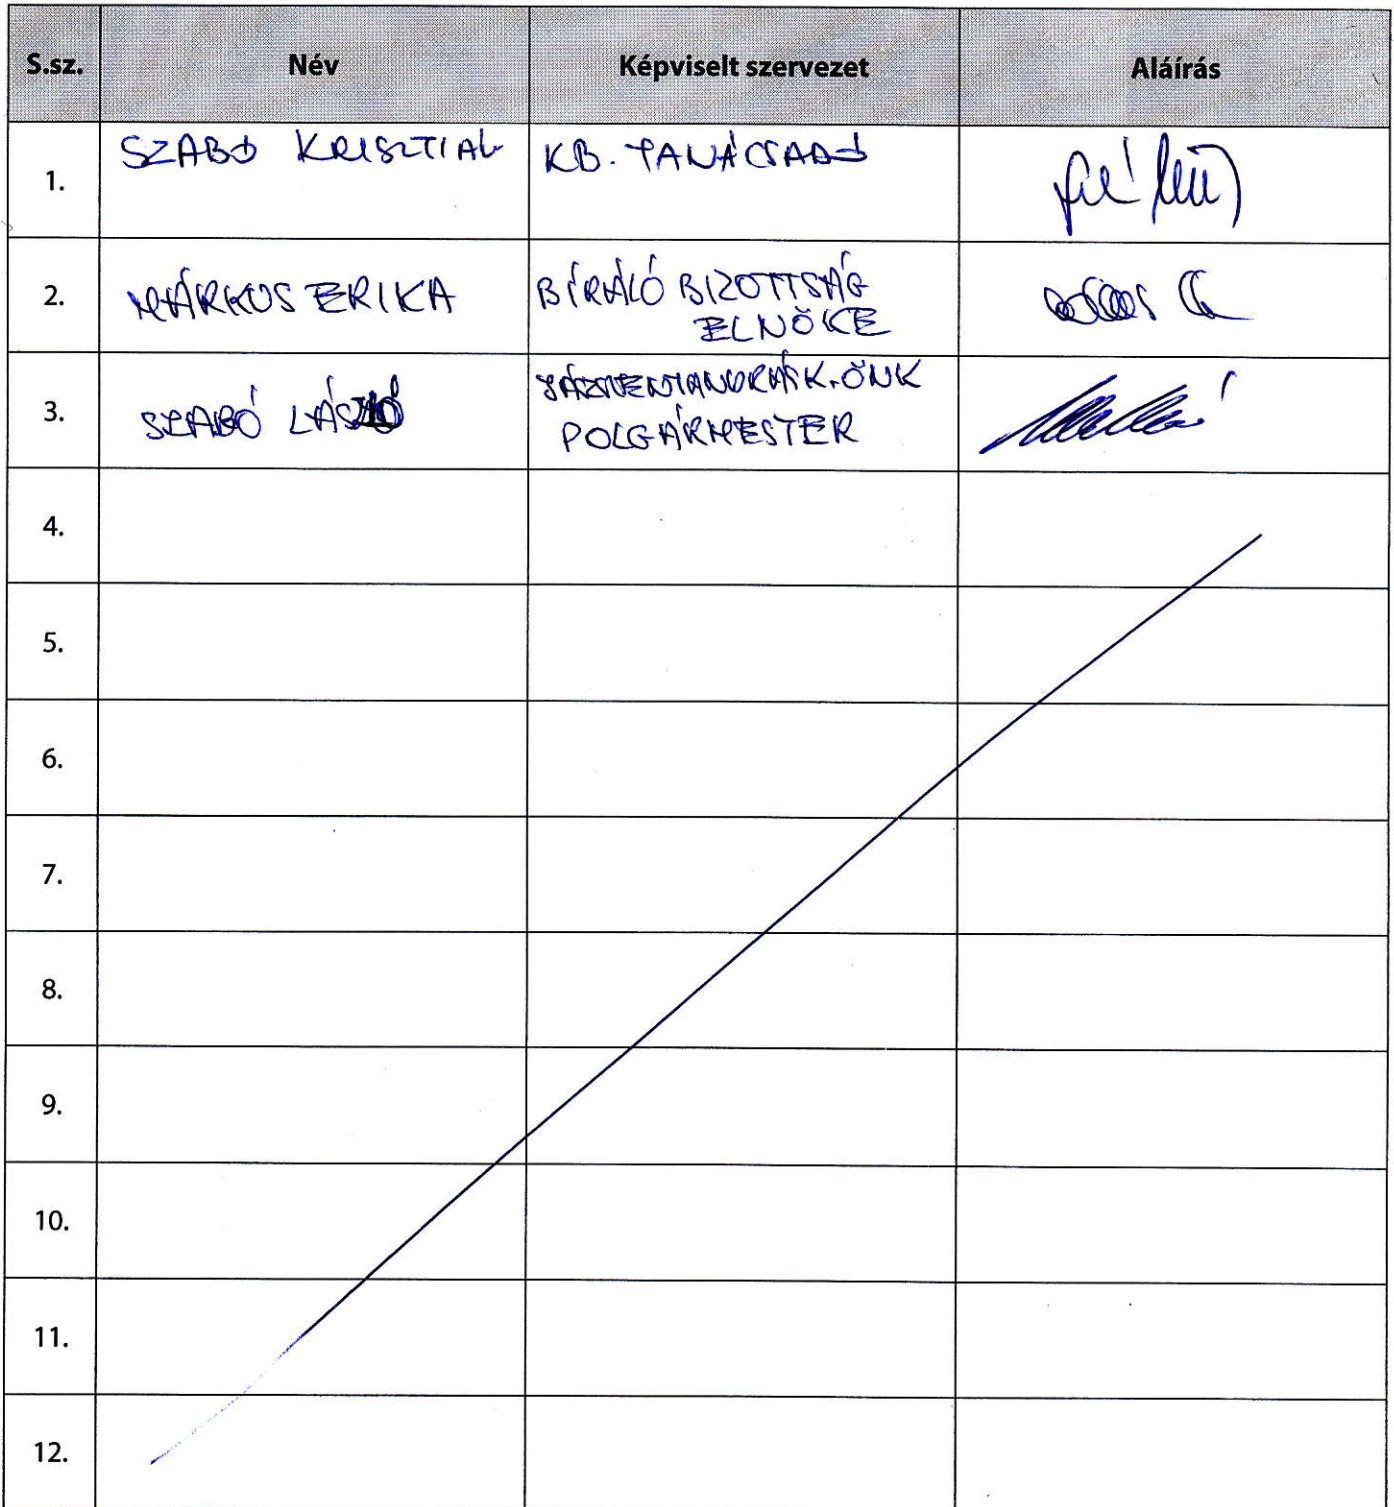 S.sz. Név Képviselt szervezet Aláírás
1. SZABÓ KRISZTIÁN KB. TANÁCSADÓ
2. MÁRKUS ERIKA BÍRÁLÓ BIZOTTSÁG
ELNÖKE
3. SZABÓ LÁSZLÓ JÁSZSZENTANDRÁS K. ÖNK
POLGÁRMESTER
4.
5.
6.
7.
8.
9.
10.
11.
12.